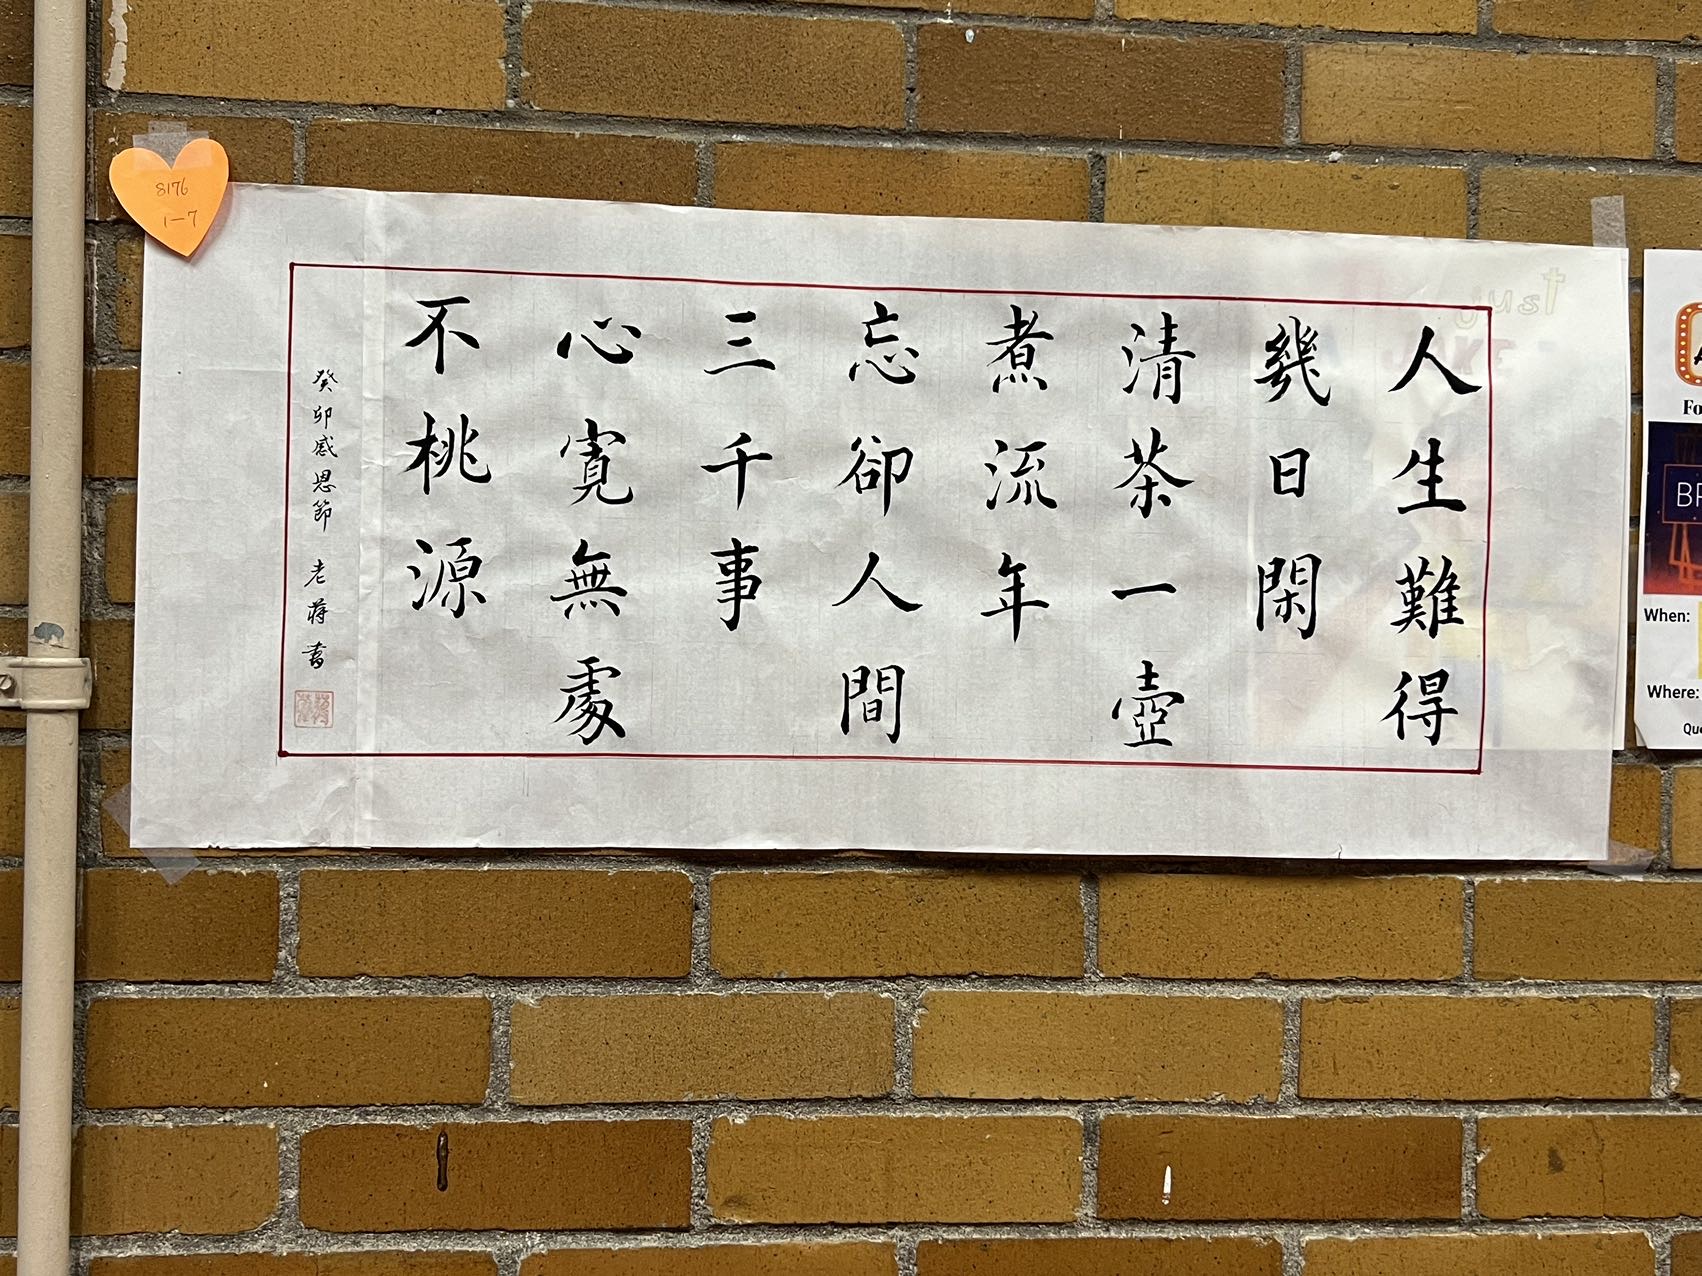 人生難得
幾日閑
清茶一壺
煮流年
忘卻人間
三千事
心寬無處
不桃源
癸卯感恩節 老蔣書
8176
1-7
just
Fo
BR
When:
Where:
Que